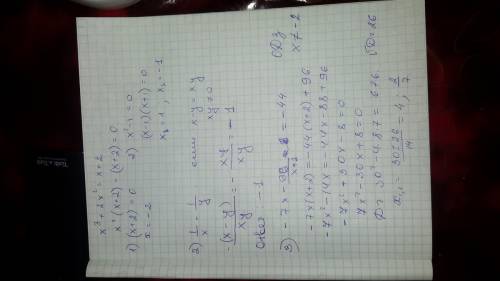 x³+2x²=x+2
x²(x+2)-(x+2)=0
1) (x+2)=0   2) x²-1=0
x=-2   (x-1)(x+1)=0
x₂=1, x₃=-1
2) 1/x - 1/y   если x-y=xy
xy≠0
-(x-y)/xy = -xy/xy = -1
Ответ: -1
3) -7x - /x+2 = -44   ОДЗ
x≠-2
-7x(x+2)=-44(x+2)+96
-7x²-14x=-44x-88+96
-7x²+30x-8=0
7x²-30x+8=0
D=30²-4·8·7=676   √D=26
x₁,₂=30±26/14=4; 2/7